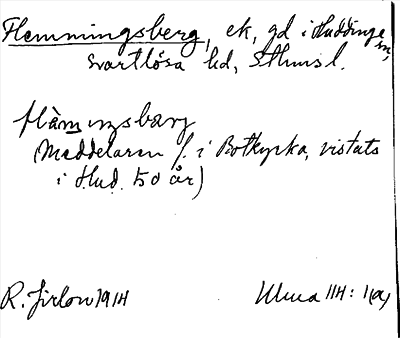 Flemmingsberg, ek, gd i Huddinge sn,
Svartlösa hd, Sthms l.
flàmıŋsbærj
(Meddelaren f. i Botkyrka, vistats
i Hud. 50 år)
R. Jirlow 1914 Uma 114: 1(a)